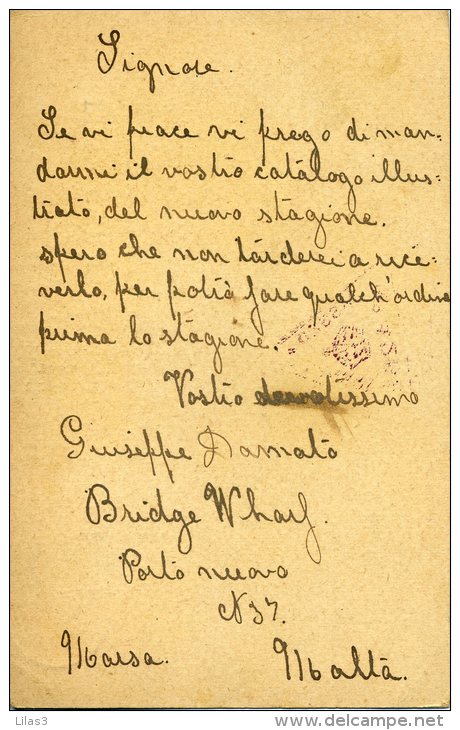 Signore.
Se vi piace vi prego di man-
darmi il vostro catálogo illus-
trato, del nuovo stagione.
spero che non tarderei a rice-
verlo, per potrò fare qualch'ordine
prima lo stagione.
Vostro devotissimo
Giuseppe Damato
Bridge Wharf.
Porto nuovo
N 37.
Marsa. Malta.
Lilas3
http://www.delcampe.net